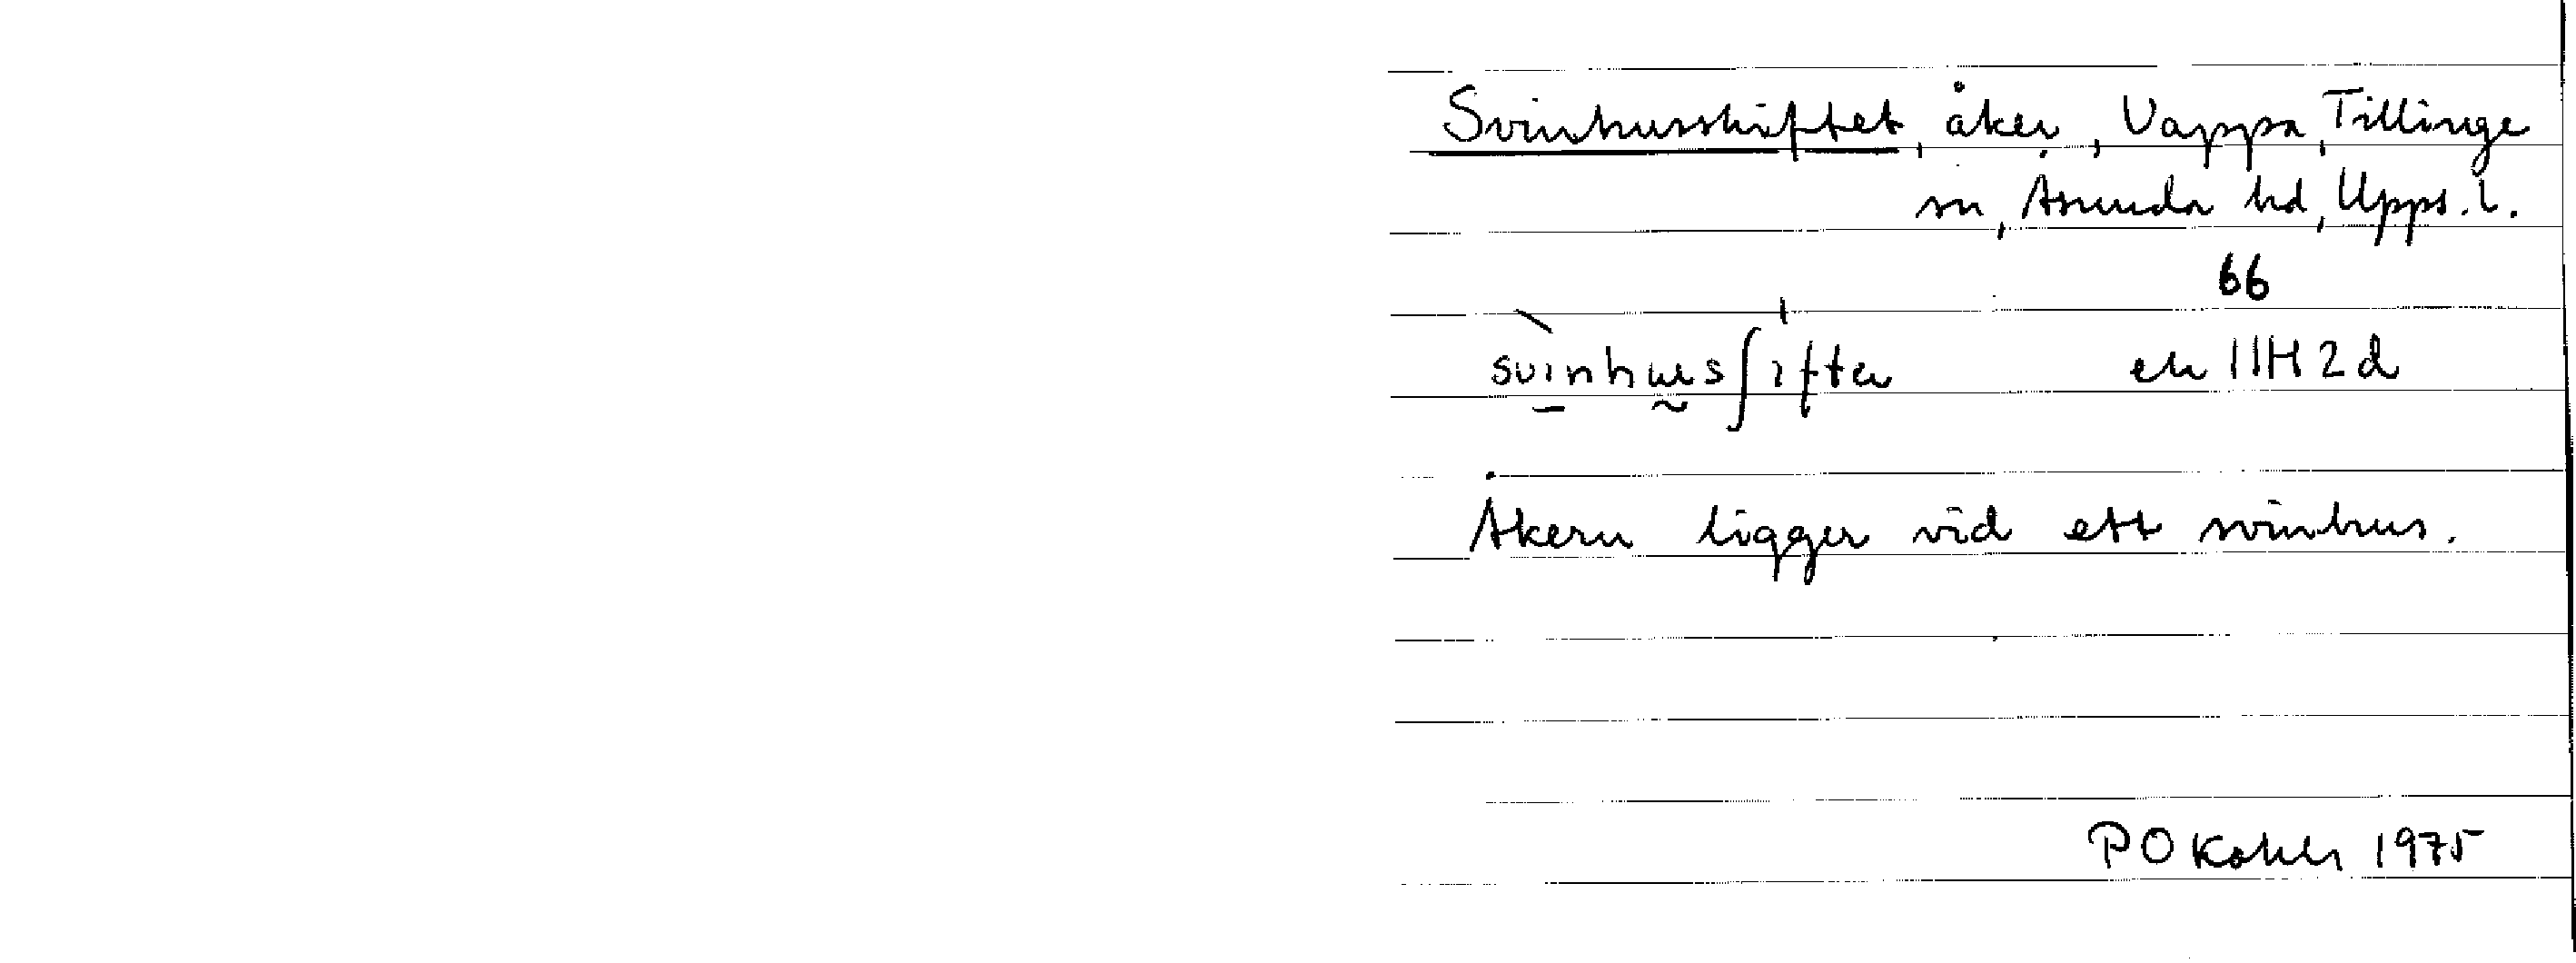 Svinhusskiftet, åker, Vappa, Tillinge
sn, Åsunda hd, Upps. l.
66
ek 11H 2d
Åkern ligger vid ett svinhus.
P O Kohler 1975